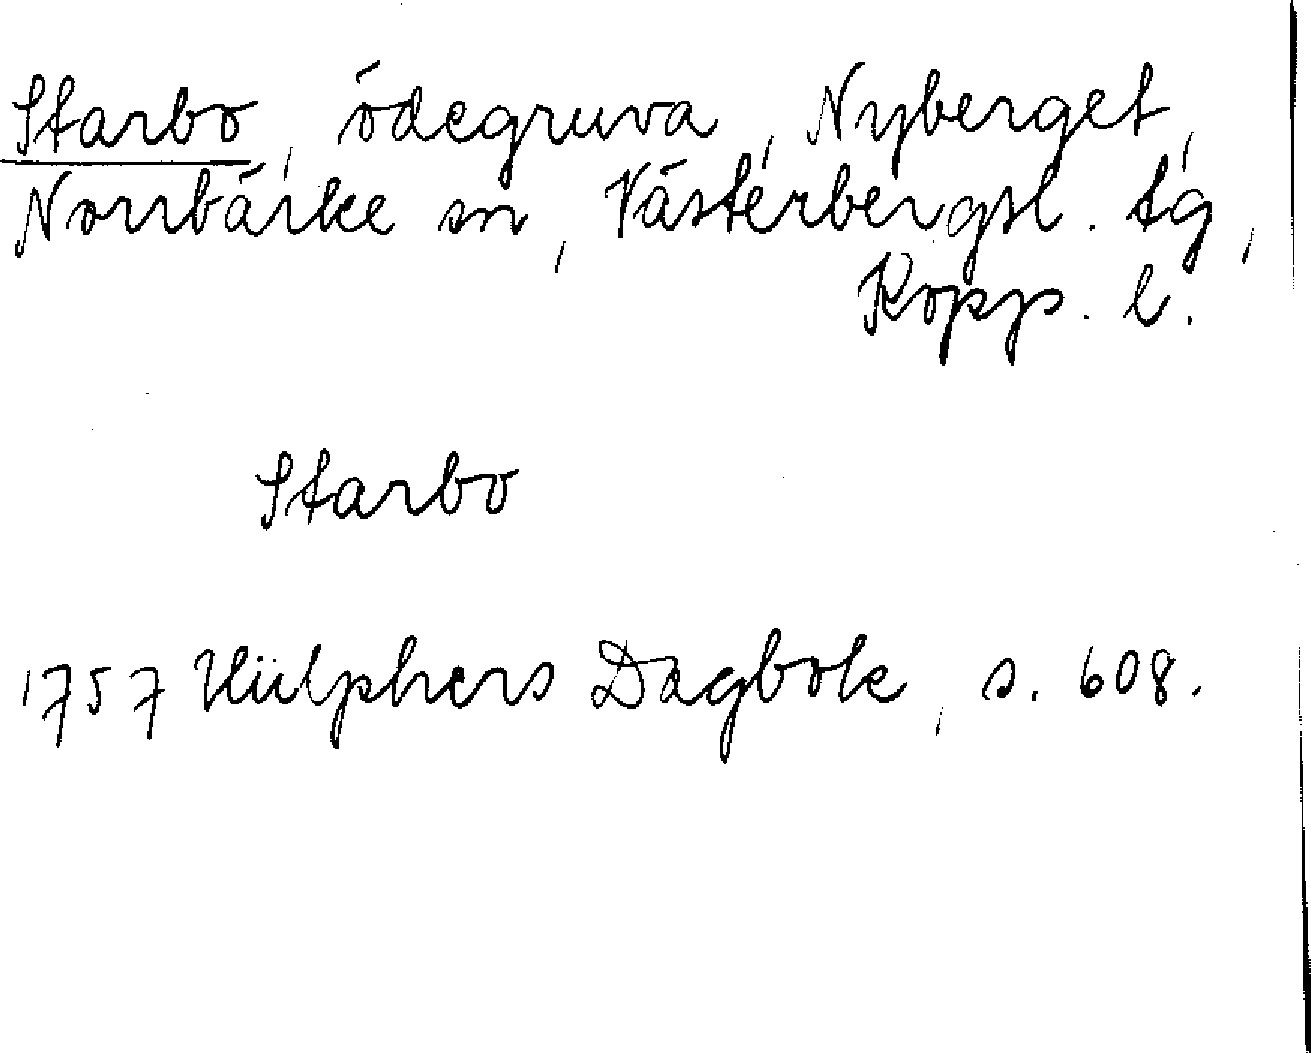 Starbo, ödegruva, Nyberget,
Norrbärke sn, Västerbergsl. tg,
Kopp. l.
Starbo
1757 Hülphers Dagbok, s. 608.